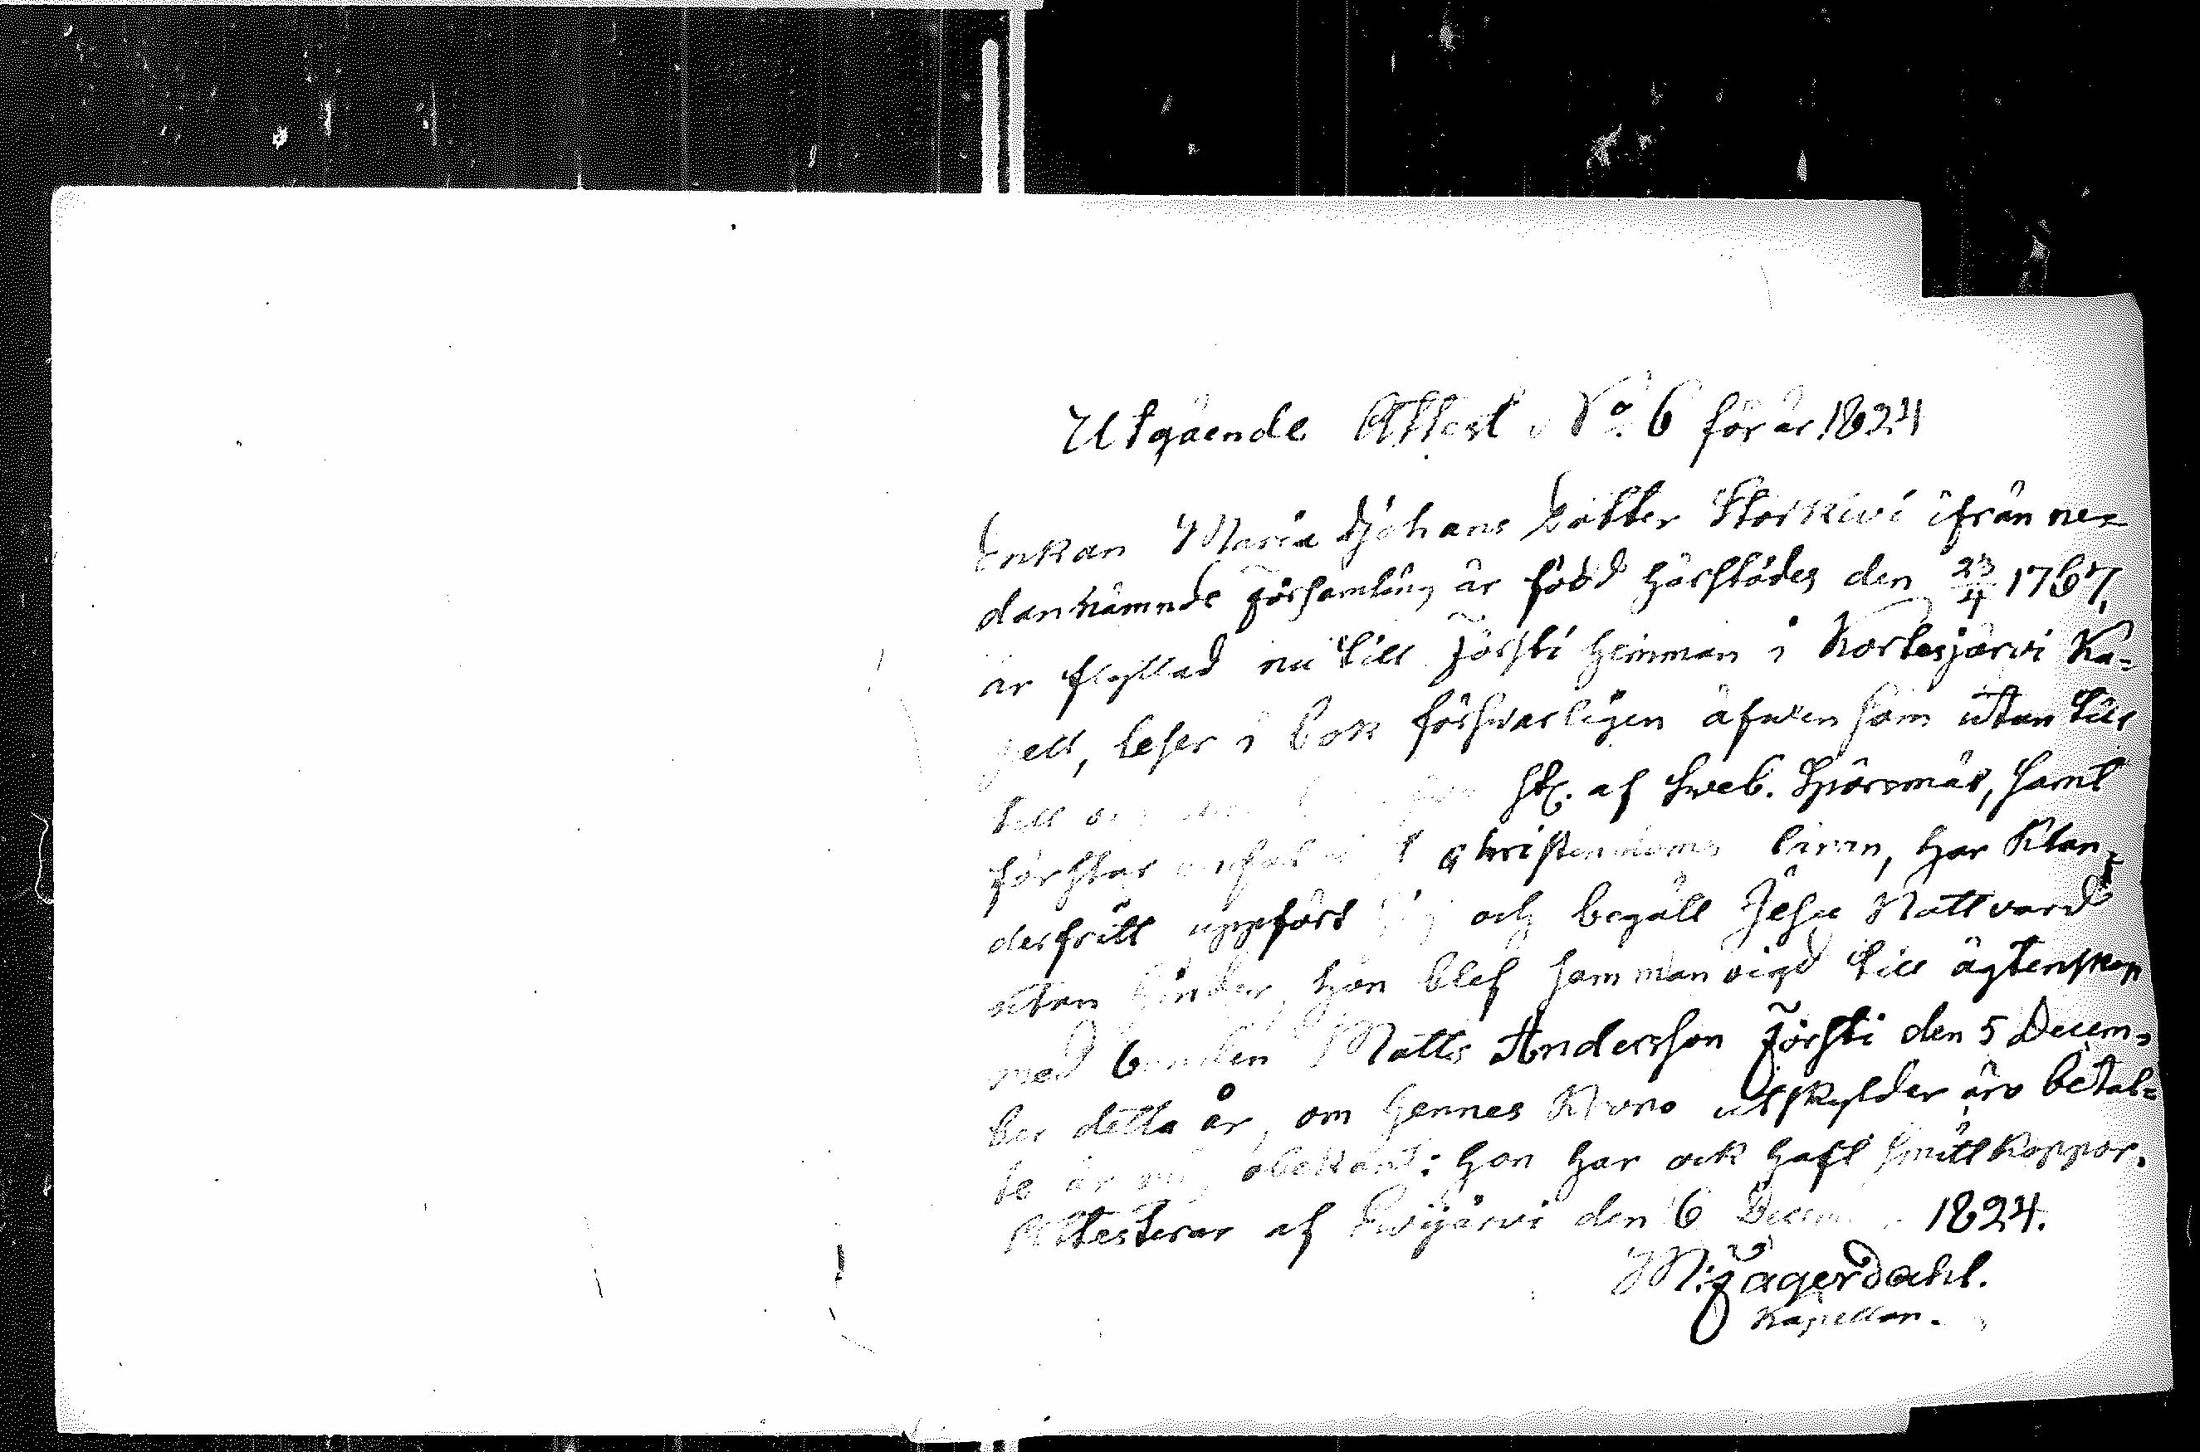 Utgående Attest No. 6 för år 1824
Enkan Maria Johans dotter Storkivi ifrån ne=
dannämnde Församling är född härstädes den 23/4 1767,
är flyttad nu till Jörsti Heinman i Kortesjärvi Ka=
pell, leser i bok försvarligen äfven som utan till
till af Sveb. Spörsmål, samt
förstår Christendoms läran, har klan=
derfritt uppfört och begått Jesu Nattvard
utan hinder, hon blef sammanvigd till ägtenskap
med bonden Matts Andersson Jörsti den 5 Decem=
ber detta år, om hennes Krono utskylder äro betal=
te är mig obekant: hon har ock haft smittkoppor.
Attesterar af Evijärvi den 6 Decem 1824.
M: Jagerdahl.
Kapellan.